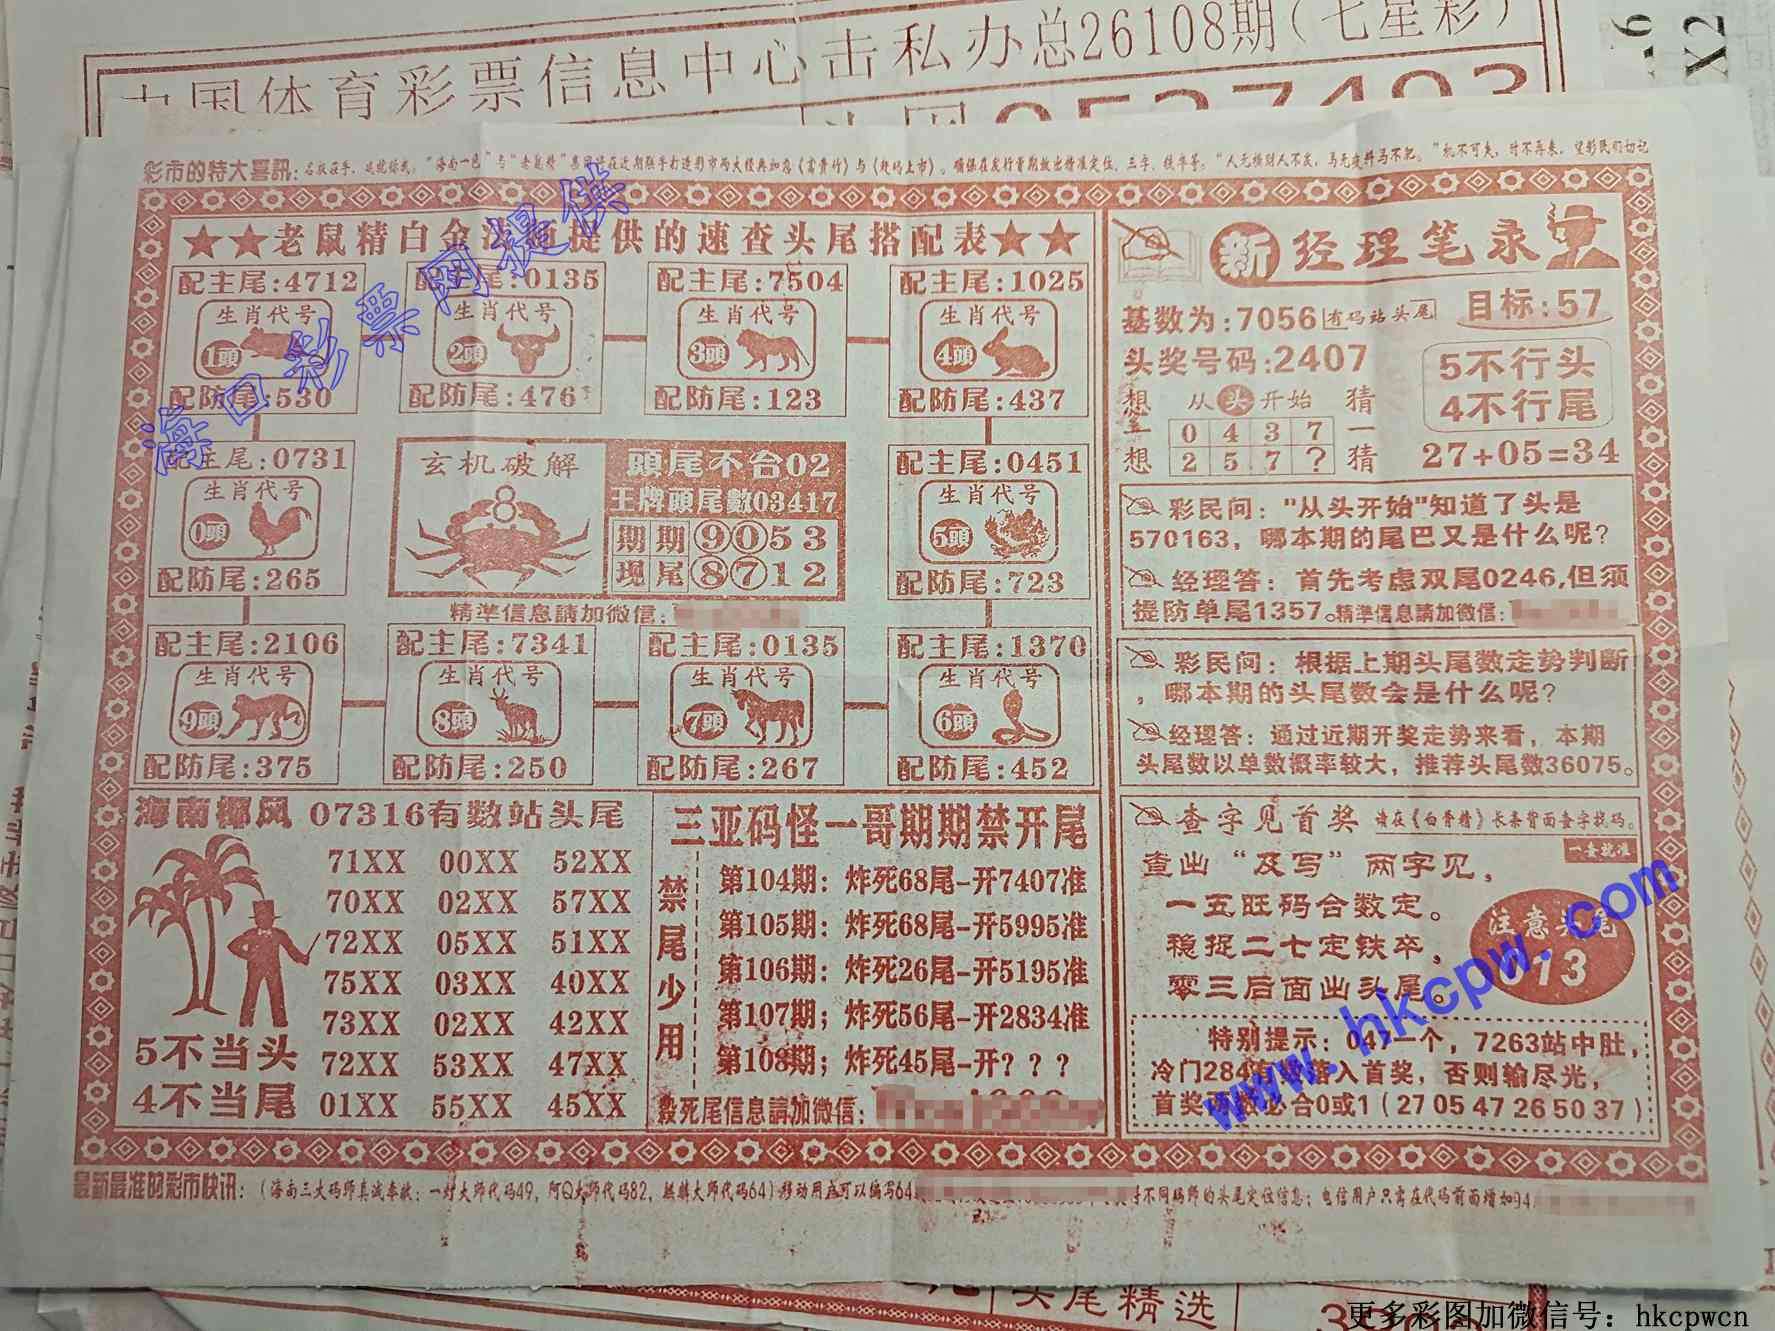 中国体育彩票信息中心击私办总26108期(七星彩)
彩市的特大喜訊:
★★老鼠精白金
提供的速查头尾搭配表★★
配主尾:4712
生肖代号
1頭
配防尾:530
配主尾:0135
生肖代号
2頭
配防尾:476
配主尾:7504
生肖代号
3頭
配防尾:123
配主尾:1025
生肖代号
4頭
配防尾:437
配主尾:0731
生肖代号
0頭
配防尾:265
玄机破解
8
頭尾不合02
王牌頭尾數03417
期期⑨⓪53
现尾⑧⑦12
配主尾:0451
生肖代号
5頭
配防尾:723
精準信息請加微信:
配主尾:2106
生肖代号
9頭
配防尾:375
配主尾:7341
生肖代号
8頭
配防尾:250
配主尾:0135
生肖代号
7頭
配防尾:267
配主尾:1370
生肖代号
6頭
配防尾:452
海南椰风 07316有数站头尾
71XX 00XX 52XX
70XX 02XX 57XX
72XX 05XX 51XX
75XX 03XX 40XX
73XX 02XX 42XX
72XX 53XX 47XX
01XX 55XX 45XX
5不当头
4不当尾
三亚码怪一哥期期禁开尾
禁尾少用
第104期: 炸死68尾-开7407准
第105期: 炸死68尾-开5995准
第106期: 炸死26尾-开5195准
第107期; 炸死56尾-开2834准
第108期; 炸死45尾-开? ? ?
殺死尾信息請加微信:
新 经理笔录
基数为:7056 有码站头尾 目标:57
头奖号码:2407
5不行头
4不行尾
想一想
从头开始
猜一猜
0 4 3 7
2 5 7 ?
27+05=34
彩民问: "从头开始"知道了头是
570163, 哪本期的尾巴又是什么呢?
经理答: 首先考虑双尾0246,但须
提防单尾1357。精準信息請加微信:
彩民问: 根据上期头尾数走势判断
, 哪本期的头尾数会是什么呢?
经理答: 通过近期开奖走势来看, 本期
头尾数以单数概率较大, 推荐头尾数36075。
查字见首奖 请在《白骨精》长条背面查字找码。
一查就准
查出“及写”两字见,
一五旺码合数定。
稳捉二七定铁卒,
零三后面出头尾。
注意头尾
613
特别提示: 047一个, 7263站中肚,
冷门284有数落入首奖, 否则输尽光,
首奖两数必合0或1 (27 05 47 26 50 37)
最新最准的彩市快讯: (海南三大码师真诚奉献: 一好大师代码49, 阿Q大师代码82, 麒麟大师代码64) 移动用户可以编写64
不同码师的头尾定位信息; 电信用户只需在代码前面增加94
海口彩票网提供
www.hkcpw.com
X2
头尾精选
更多彩图加微信号: hkcpwcn